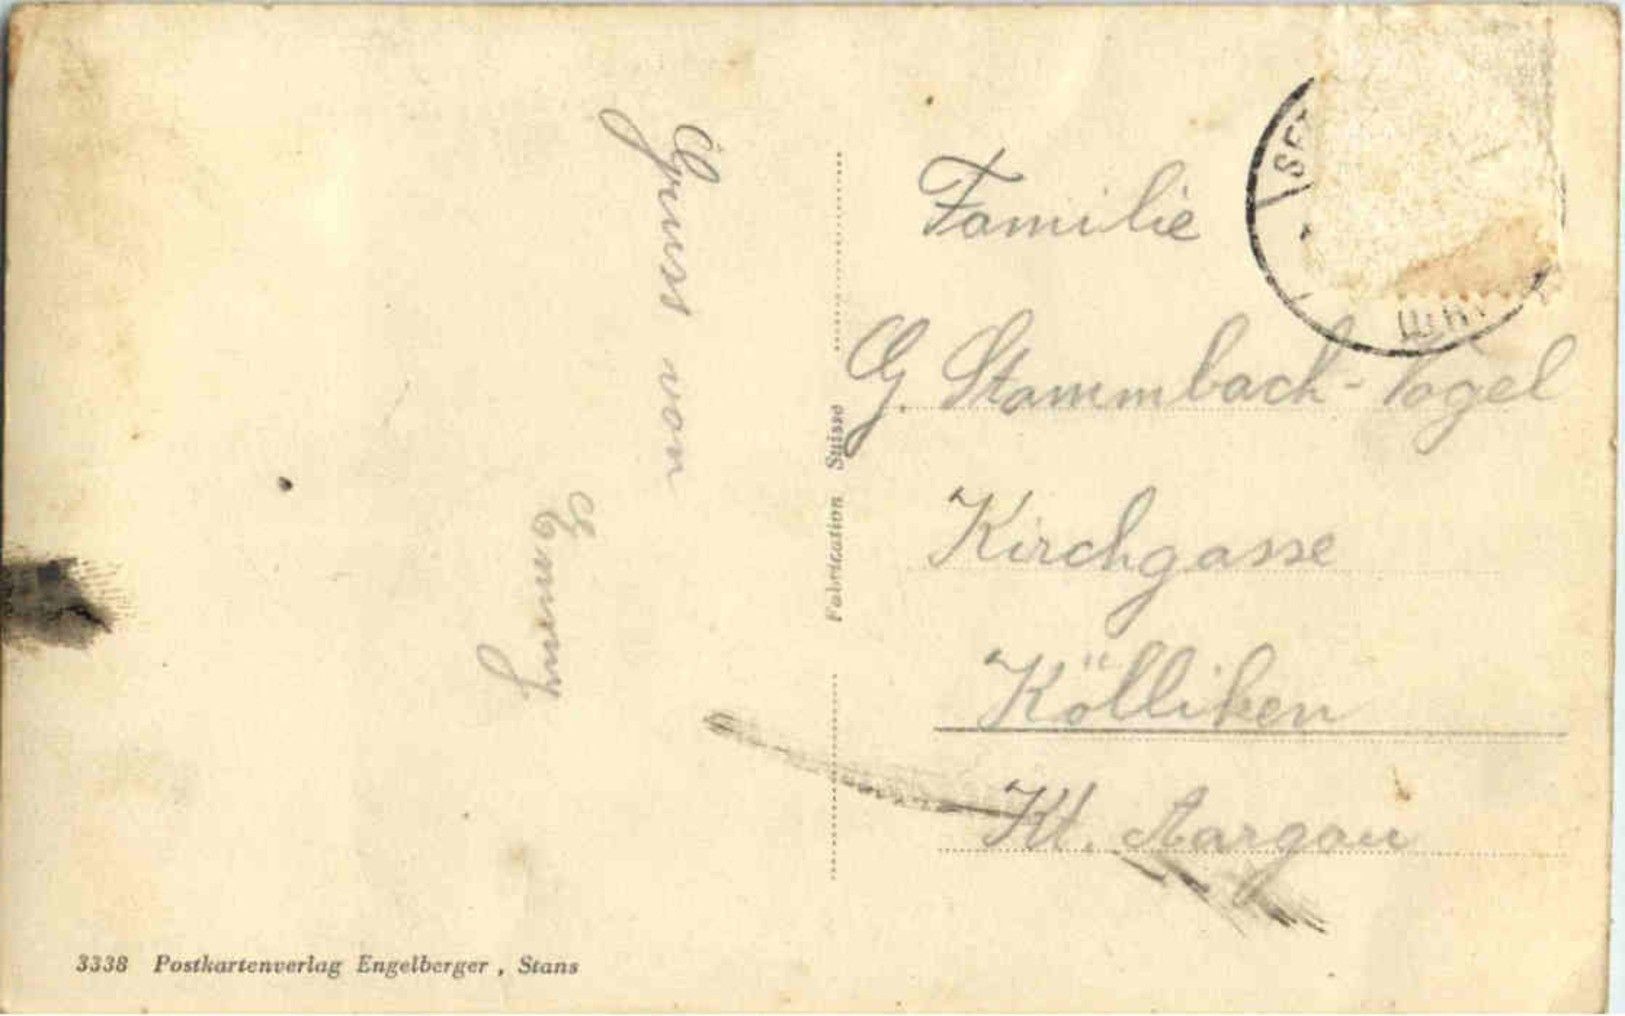 Gruss von
Fabrication Suisse
Familie
G. Stammbach-Vogel
Kirchgasse
Kölliken
Kt. Aargau
3338 Postkartenverlag Engelberger, Stans